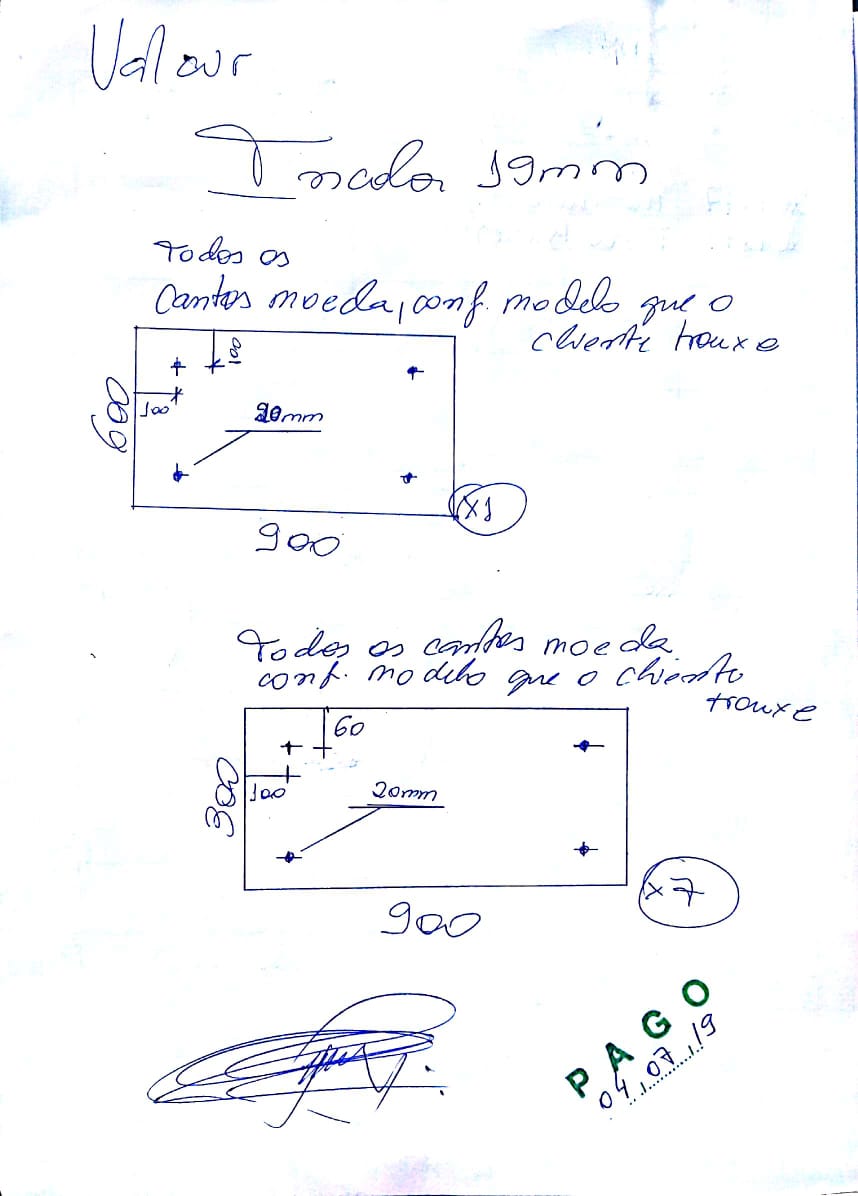 Valour
Incolor 19mm
Todos os
Cantos moeda, conf. modelo que o
cliente trouxe
100
100
600
20mm
x1
900
Todos os cantos moeda
conf. modelo que o cliente
trouxe
60
100
300
20mm
x7
900
PAGO
04,07,19